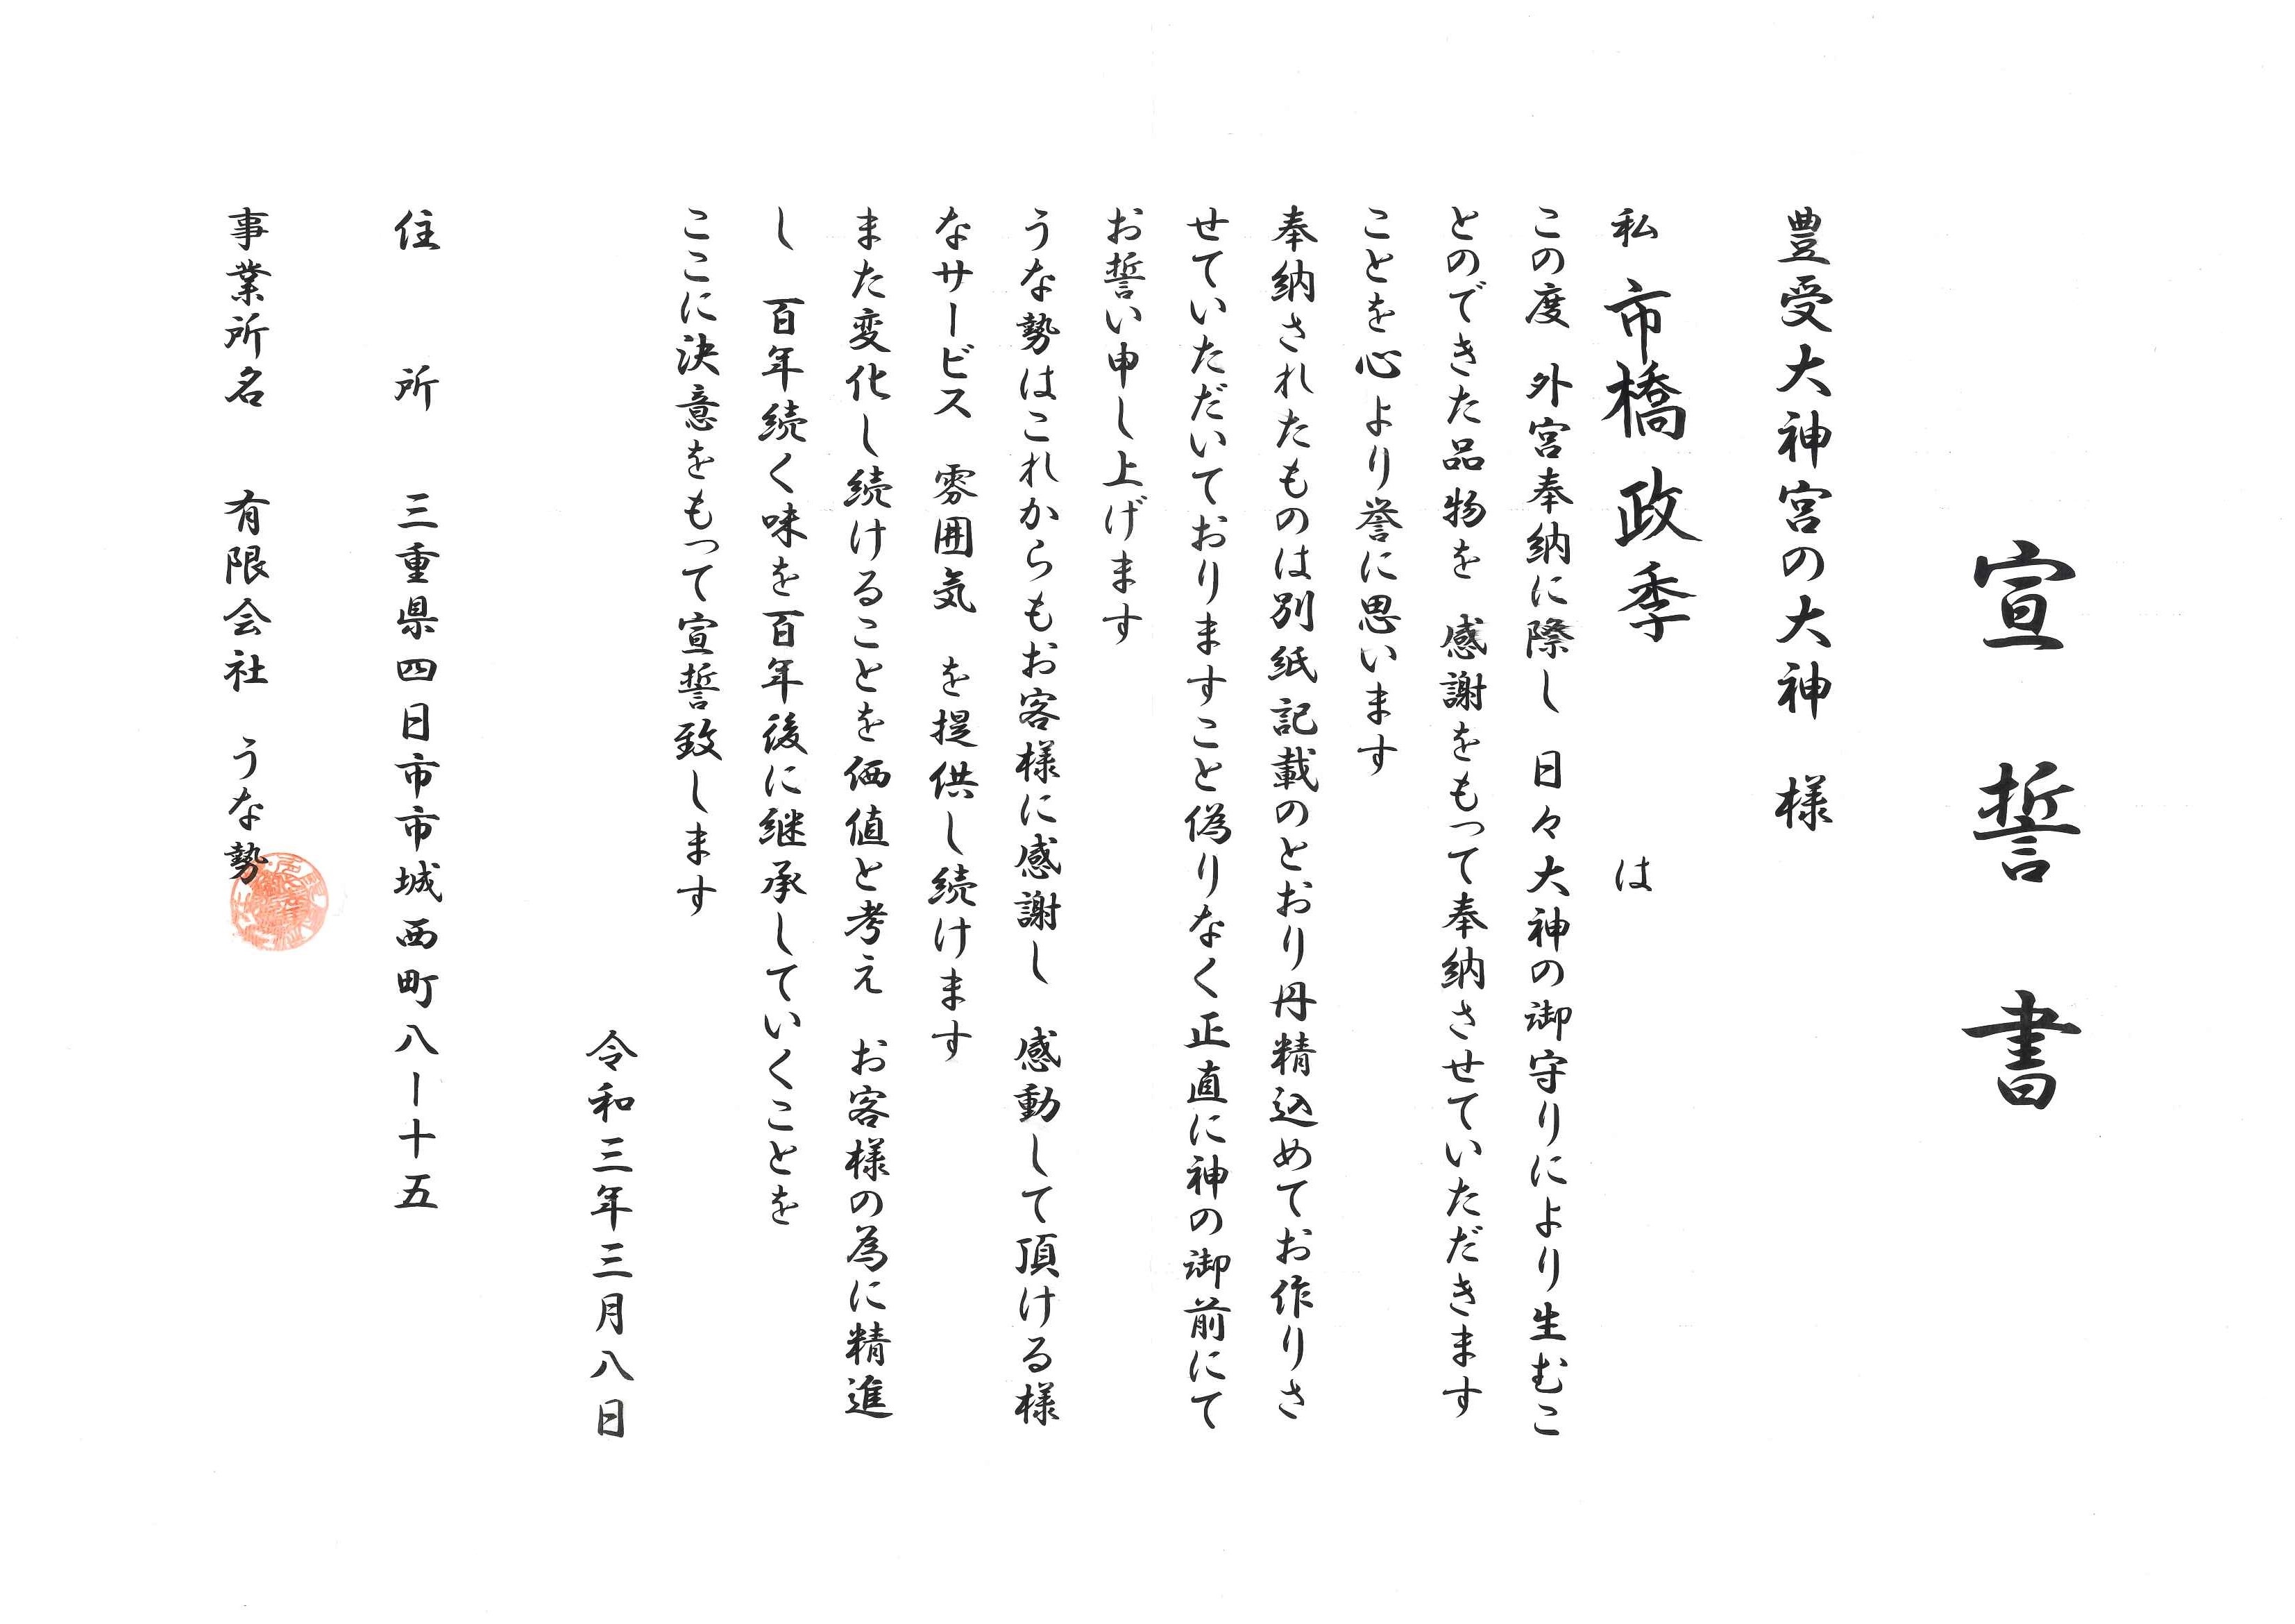 宣誓書
豊受大神宮の大神 様
私 市橋政季 は
この度 外宮奉納に際し 日々大神の御守りにより生むこ
とのできた品物を 感謝をもって奉納させていただきます
ことを心より誉に思います
奉納されたものは別紙記載のとおり丹精込めてお作りさ
せていただいておりますこと偽りなく正直に神の御前にて
お誓い申し上げます
うな勢はこれからもお客様に感謝し 感動して頂ける様
なサービス 雰囲気 を提供し続けます
また変化し続けることを価値と考え お客様の為に精進
し 百年続く味を百年後に継承していくことを
ここに決意をもって宣誓致します
令和三年三月八日
住所 三重県四日市市城西町八ー十五
事業所名 有限会社 うな勢